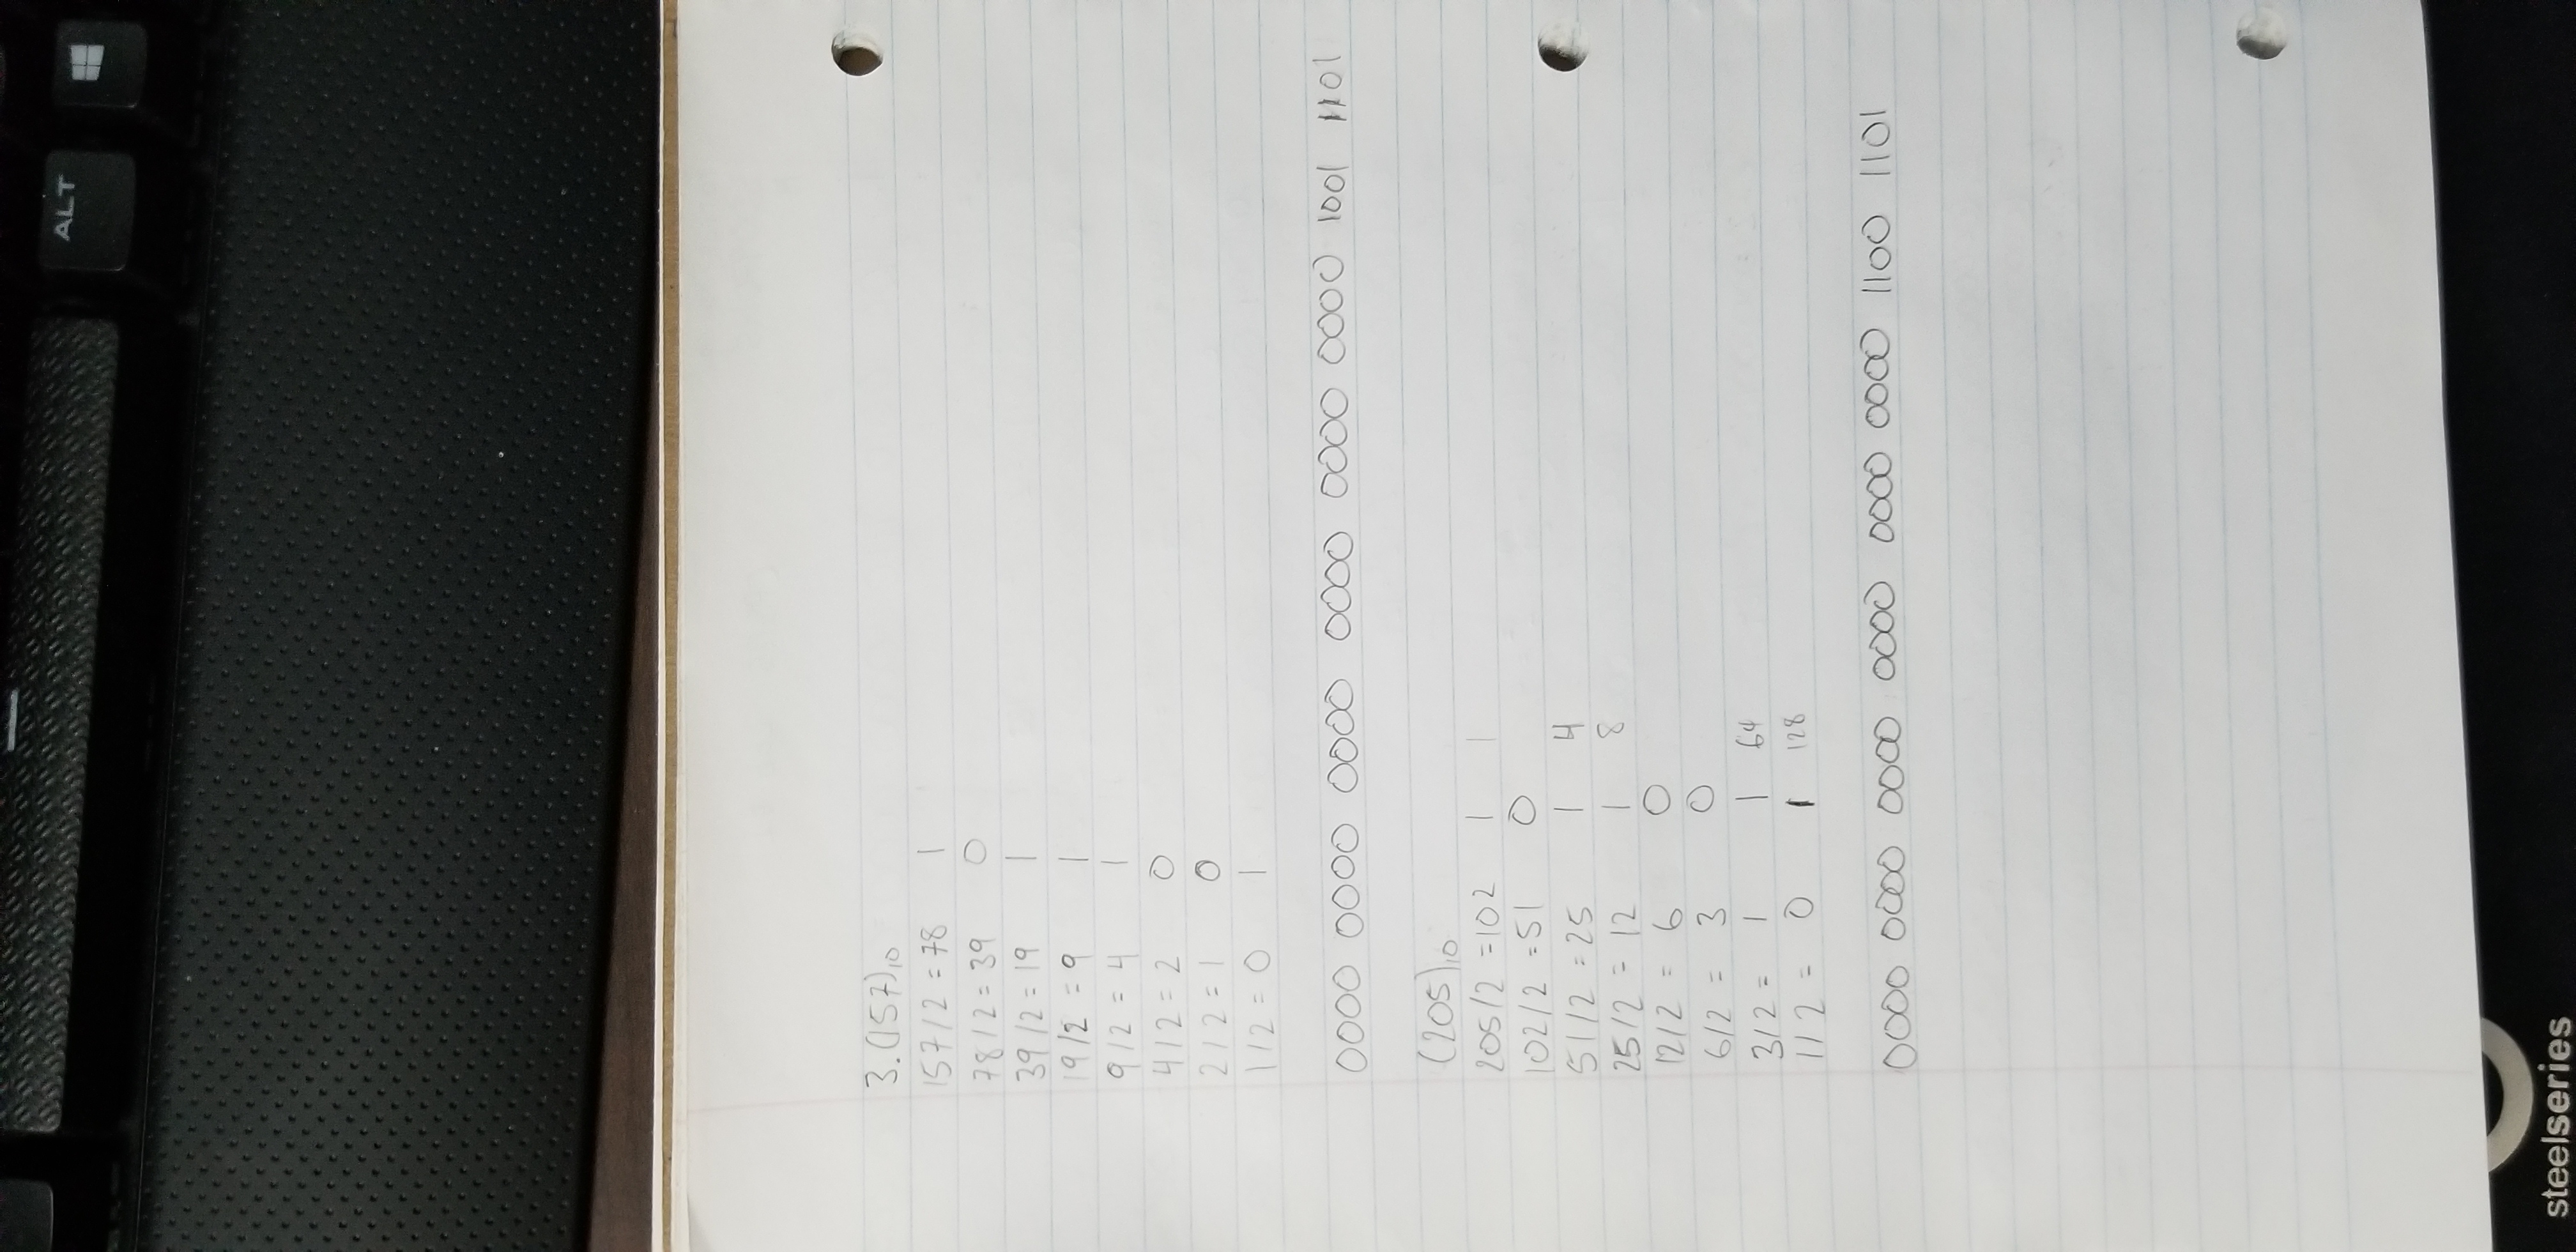 ALT
3. (157)₁₀
157/2 = 78 1
78/2 = 39 0
39/2 = 19 1
19/2 = 9 1
9/2 = 4 1
4/2 = 2 0
2/2 = 1 0
1/2 = 0 1
0000 0000 0000 0000 0000 0000 1001 1101
(205)₁₀
205/2 = 102 1 1
102/2 = 51 0
51/2 = 25 1 4
25/2 = 12 1 8
12/2 = 6 0
6/2 = 3 0
3/2 = 1 1 64
1/2 = 0 1 128
0000 0000 0000 0000 0000 0000 1100 1101
steelseries